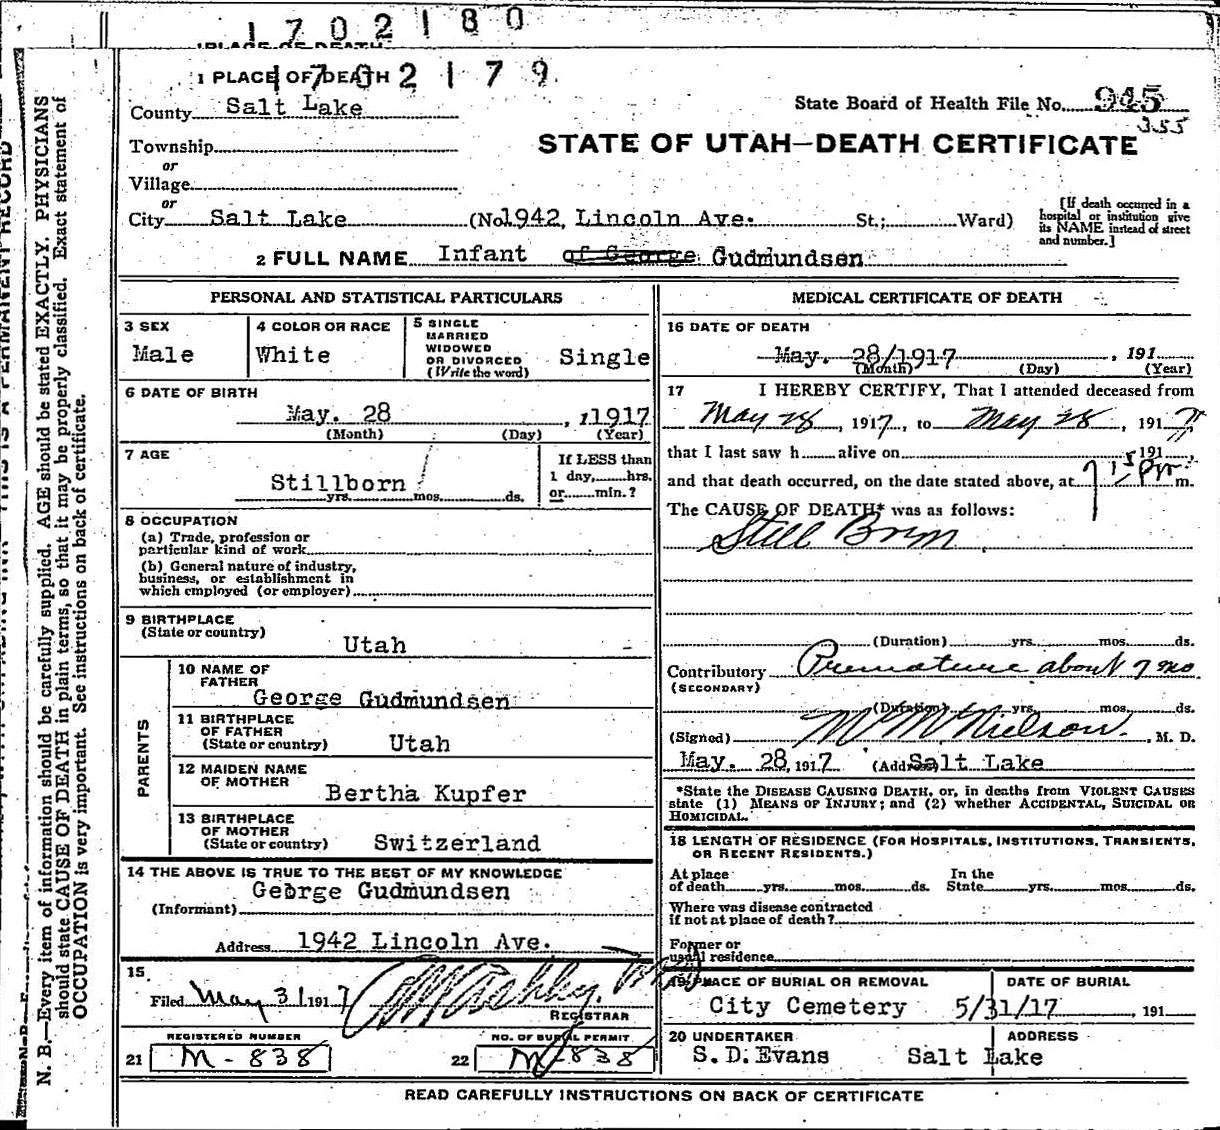 1702180
PLACE OF DEATH
1 PLACE OF DEATH
1702179
County Salt Lake
State Board of Health File No. 945
355
Township
or
Village
or
STATE OF UTAH—DEATH CERTIFICATE
City Salt Lake (No. 1942, Lincoln Ave. St.; Ward)
[If death occurred in a
hospital or institution give
its NAME instead of street
and number.]
2 FULL NAME Infant of George Gudmundsen
PERSONAL AND STATISTICAL PARTICULARS
3 SEX
Male
4 COLOR OR RACE
White
5 SINGLE
MARRIED
WIDOWED
OR DIVORCED
(Write the word)
Single
6 DATE OF BIRTH
May. 28, 1917
(Month) (Day) (Year)
7 AGE
Stillborn
yrs. mos. ds.
If LESS than
1 day, hrs.
or min.?
8 OCCUPATION
(a) Trade, profession or
particular kind of work
(b) General nature of industry,
business, or establishment in
which employed (or employer)
9 BIRTHPLACE
(State or country)
Utah
PARENTS
10 NAME OF
FATHER
George Gudmundsen
11 BIRTHPLACE
OF FATHER
(State or country) Utah
12 MAIDEN NAME
OF MOTHER
Bertha Kupfer
13 BIRTHPLACE
OF MOTHER
(State or country) Switzerland
14 THE ABOVE IS TRUE TO THE BEST OF MY KNOWLEDGE
George Gudmundsen
(Informant)
Address 1942 Lincoln Ave.
15
Filed May 31 1917
REGISTRAR
REGISTERED NUMBER
21 M-838
NO. OF BURIAL PERMIT
22 M-838
MEDICAL CERTIFICATE OF DEATH
16 DATE OF DEATH
May. 28/1917, 191
(Month) (Day) (Year)
17 I HEREBY CERTIFY, That I attended deceased from
May 28, 1917, to May 28, 1917,
that I last saw h alive on 191,
and that death occurred, on the date stated above, at m.
The CAUSE OF DEATH* was as follows:
Still Born
(Duration) yrs. mos. ds.
Contributory Premature about 7 mo
(SECONDARY)
(Duration) yrs. mos. ds.
(Signed) M M Nielson. M. D.
May. 28, 1917 (Address) Salt Lake
*State the DISEASE CAUSING DEATH, or, in deaths from VIOLENT CAUSES
state (1) MEANS OF INJURY; and (2) whether ACCIDENTAL, SUICIDAL OR
HOMICIDAL.
18 LENGTH OF RESIDENCE (FOR HOSPITALS, INSTITUTIONS, TRANSIENTS,
OR RECENT RESIDENTS.)
At place
of death yrs. mos. ds.
In the
State yrs. mos. ds.
Where was disease contracted
if not at place of death?
Former or
usual residence
19 PLACE OF BURIAL OR REMOVAL
City Cemetery
DATE OF BURIAL
5/31/17, 191
20 UNDERTAKER
S.D. Evans
ADDRESS
Salt Lake
READ CAREFULLY INSTRUCTIONS ON BACK OF CERTIFICATE
N. B.—Every item of information should be carefully supplied. AGE should be stated EXACTLY. PHYSICIANS
should state CAUSE OF DEATH in plain terms, so that it may be properly classified. Exact statement of
OCCUPATION is very important. See instructions on back of certificate.